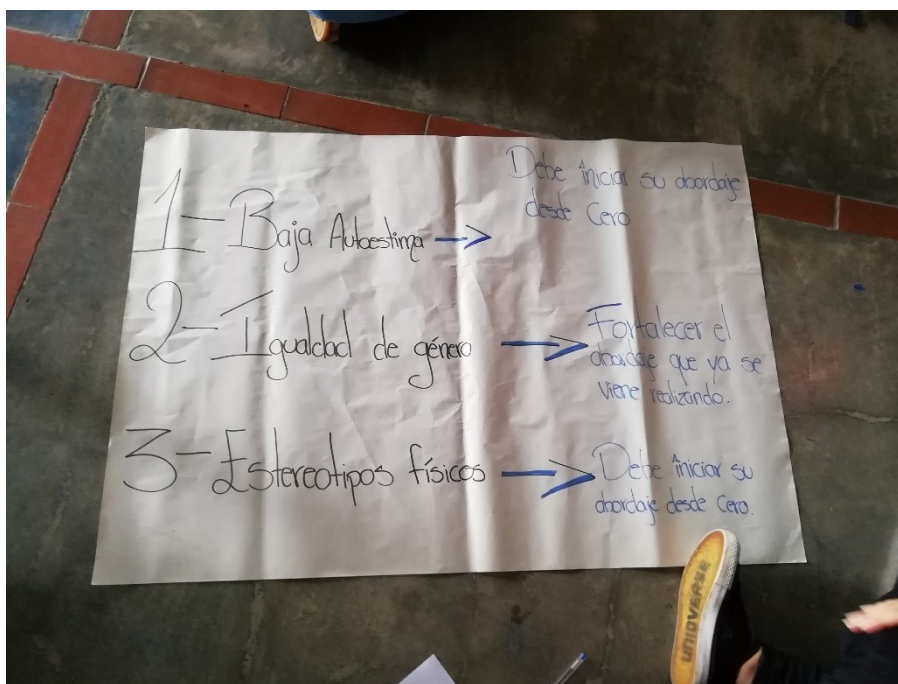 1- Baja Autoestima → Debe iniciar su abordaje
desde Cero
2- Igualdad de género → Fortalecer el
abordaje que ya se
viene realizando.
3- Estereotipos físicos → Debe iniciar su
abordaje desde Cero.
UNIOVERSE